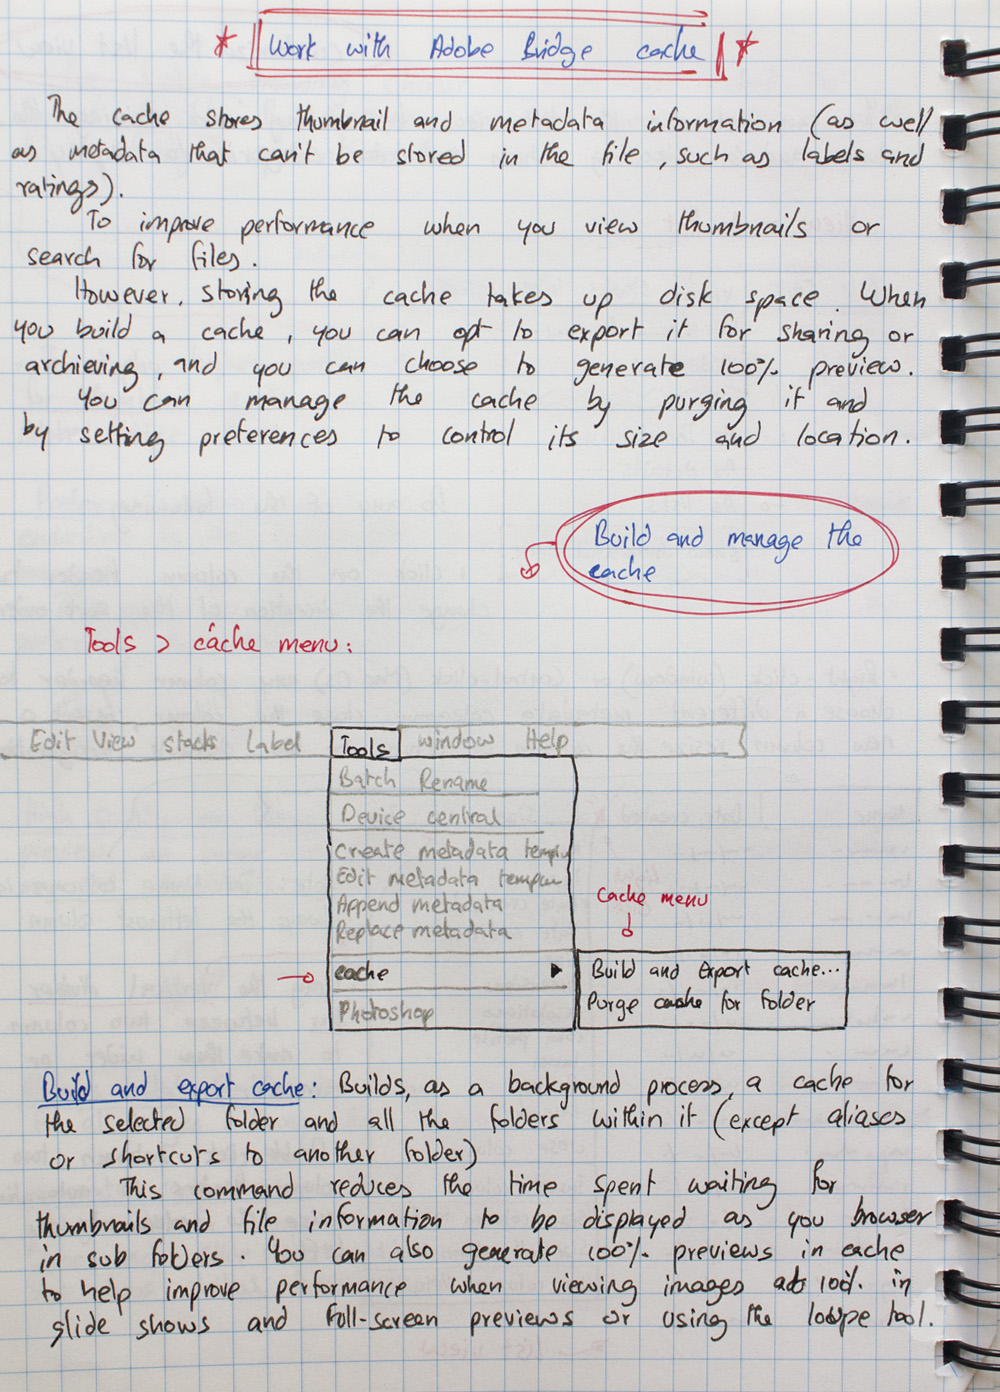 * Work with Adobe Bridge cache *
The cache stores thumbnail and metadata information (as well
as metadata that can't be stored in the file, such as labels and
ratings).
To improve performance when you view thumbnails or
search for files.
However, storing the cache takes up disk space. When
you build a cache, you can opt to export it for sharing or
archieving, and you can choose to generate 100% preview.
You can manage the cache by purging it and
by setting preferences to control its size and location.
Build and manage the
cache
Tools > cache menu:
Edit View stacks Label Tools window Help
Batch Rename
Device central
Create metadata
Edit metadata
Append metadata
Replace metadata
Cache menu
cache ▶
Build and Export cache...
Purge cache for folder
Photoshop
Build and export cache: Builds, as a background process, a cache for
the selected folder and all the folders within it (except aliases
or shortcuts to another folder)
This command reduces the time spent waiting for
thumbnails and file information to be displayed as you browser
in sub folders. You can also generate 100% previews in cache
to help improve performance when viewing images at 100% in
slide shows and full-screen previews or using the loupe tool.